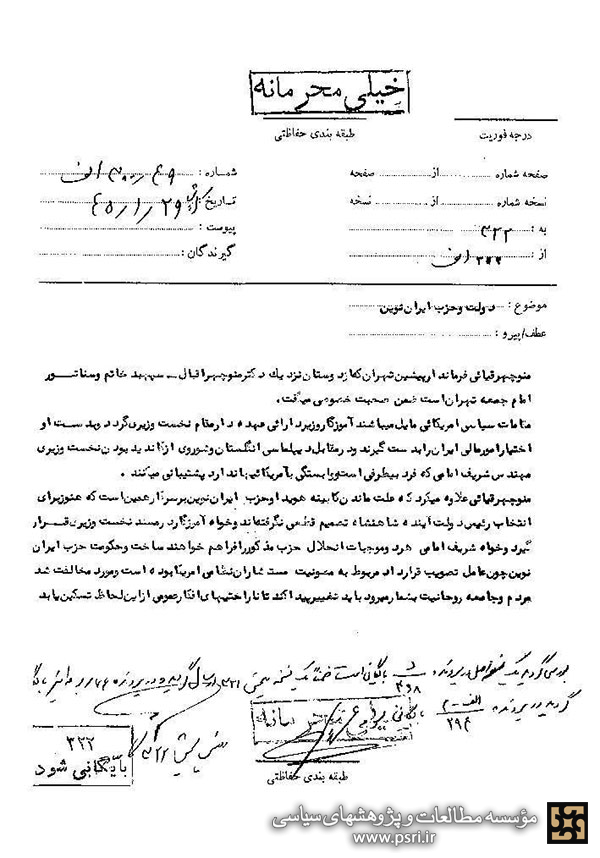 خیلی محرمانه
درجه فوریت
طبقه بندی حفاظتی
صفحه شماره از صفحه
شماره :
نسخه شماره از نسخه
تاریخ : ۴۵/۱/۲۹
به : ۳۲۲
پیوست :
از :
گیرندگان :
موضوع : دولت و حزب ایران نوین
عطف/پیرو :
منوچهر قیائی فرماندار پیشین تهران که از دوستان نزدیك دکتر منوچهر اقبال ـ سپهبد خاتم و سناتور
امام جمعه تهران است ضمن صحبت خصوصی میگفت .
مقامات سیاسی امریکائی مایل میباشند آموزگار وزیر دارائی عهده دار مقام نخست وزیری گردد و بدست او
اختیار امور مالی ایران را بدست گیرند و در مقابل دیپلماسی انگلستان و شوروی از کاندید بودن نخست وزیری
مهندس شریف امامی که فرد بیطرفی است و وابستگی بآمریکائیها ندارد پشتیبانی میکنند .
منوچهر قیائی علاوه میکرد که علت ماندن کابینه هویدا و حزب ایران نوین بر سر کار همین است که هنوز برای
انتخاب رئیس دولت آینده شاهنشاه تصمیم قطعی نگرفته‌اند و خواه آموزگار در مسند نخست وزیری قرار
گیرد و خواه شریف امامی هر دو موجبات انحلال حزب مذکور را فراهم خواهند ساخت و حکومت حزب ایران
نوین چون عامل تصویب قرارداد مربوط به مصونیت مستشاران نظامی امریکا بوده است و مورد مخالفت شدید
مردم و جامعه روحانیت بشمار میرود باید تغییر پیدا کند تا ناراحتیهای افکار عمومی از این لحاظ تسکین یابد
۳۲۲
بایگانی شود
طبقه بندی حفاظتی
مؤسسه مطالعات و پژوهشهای سیاسی
www.psri.ir